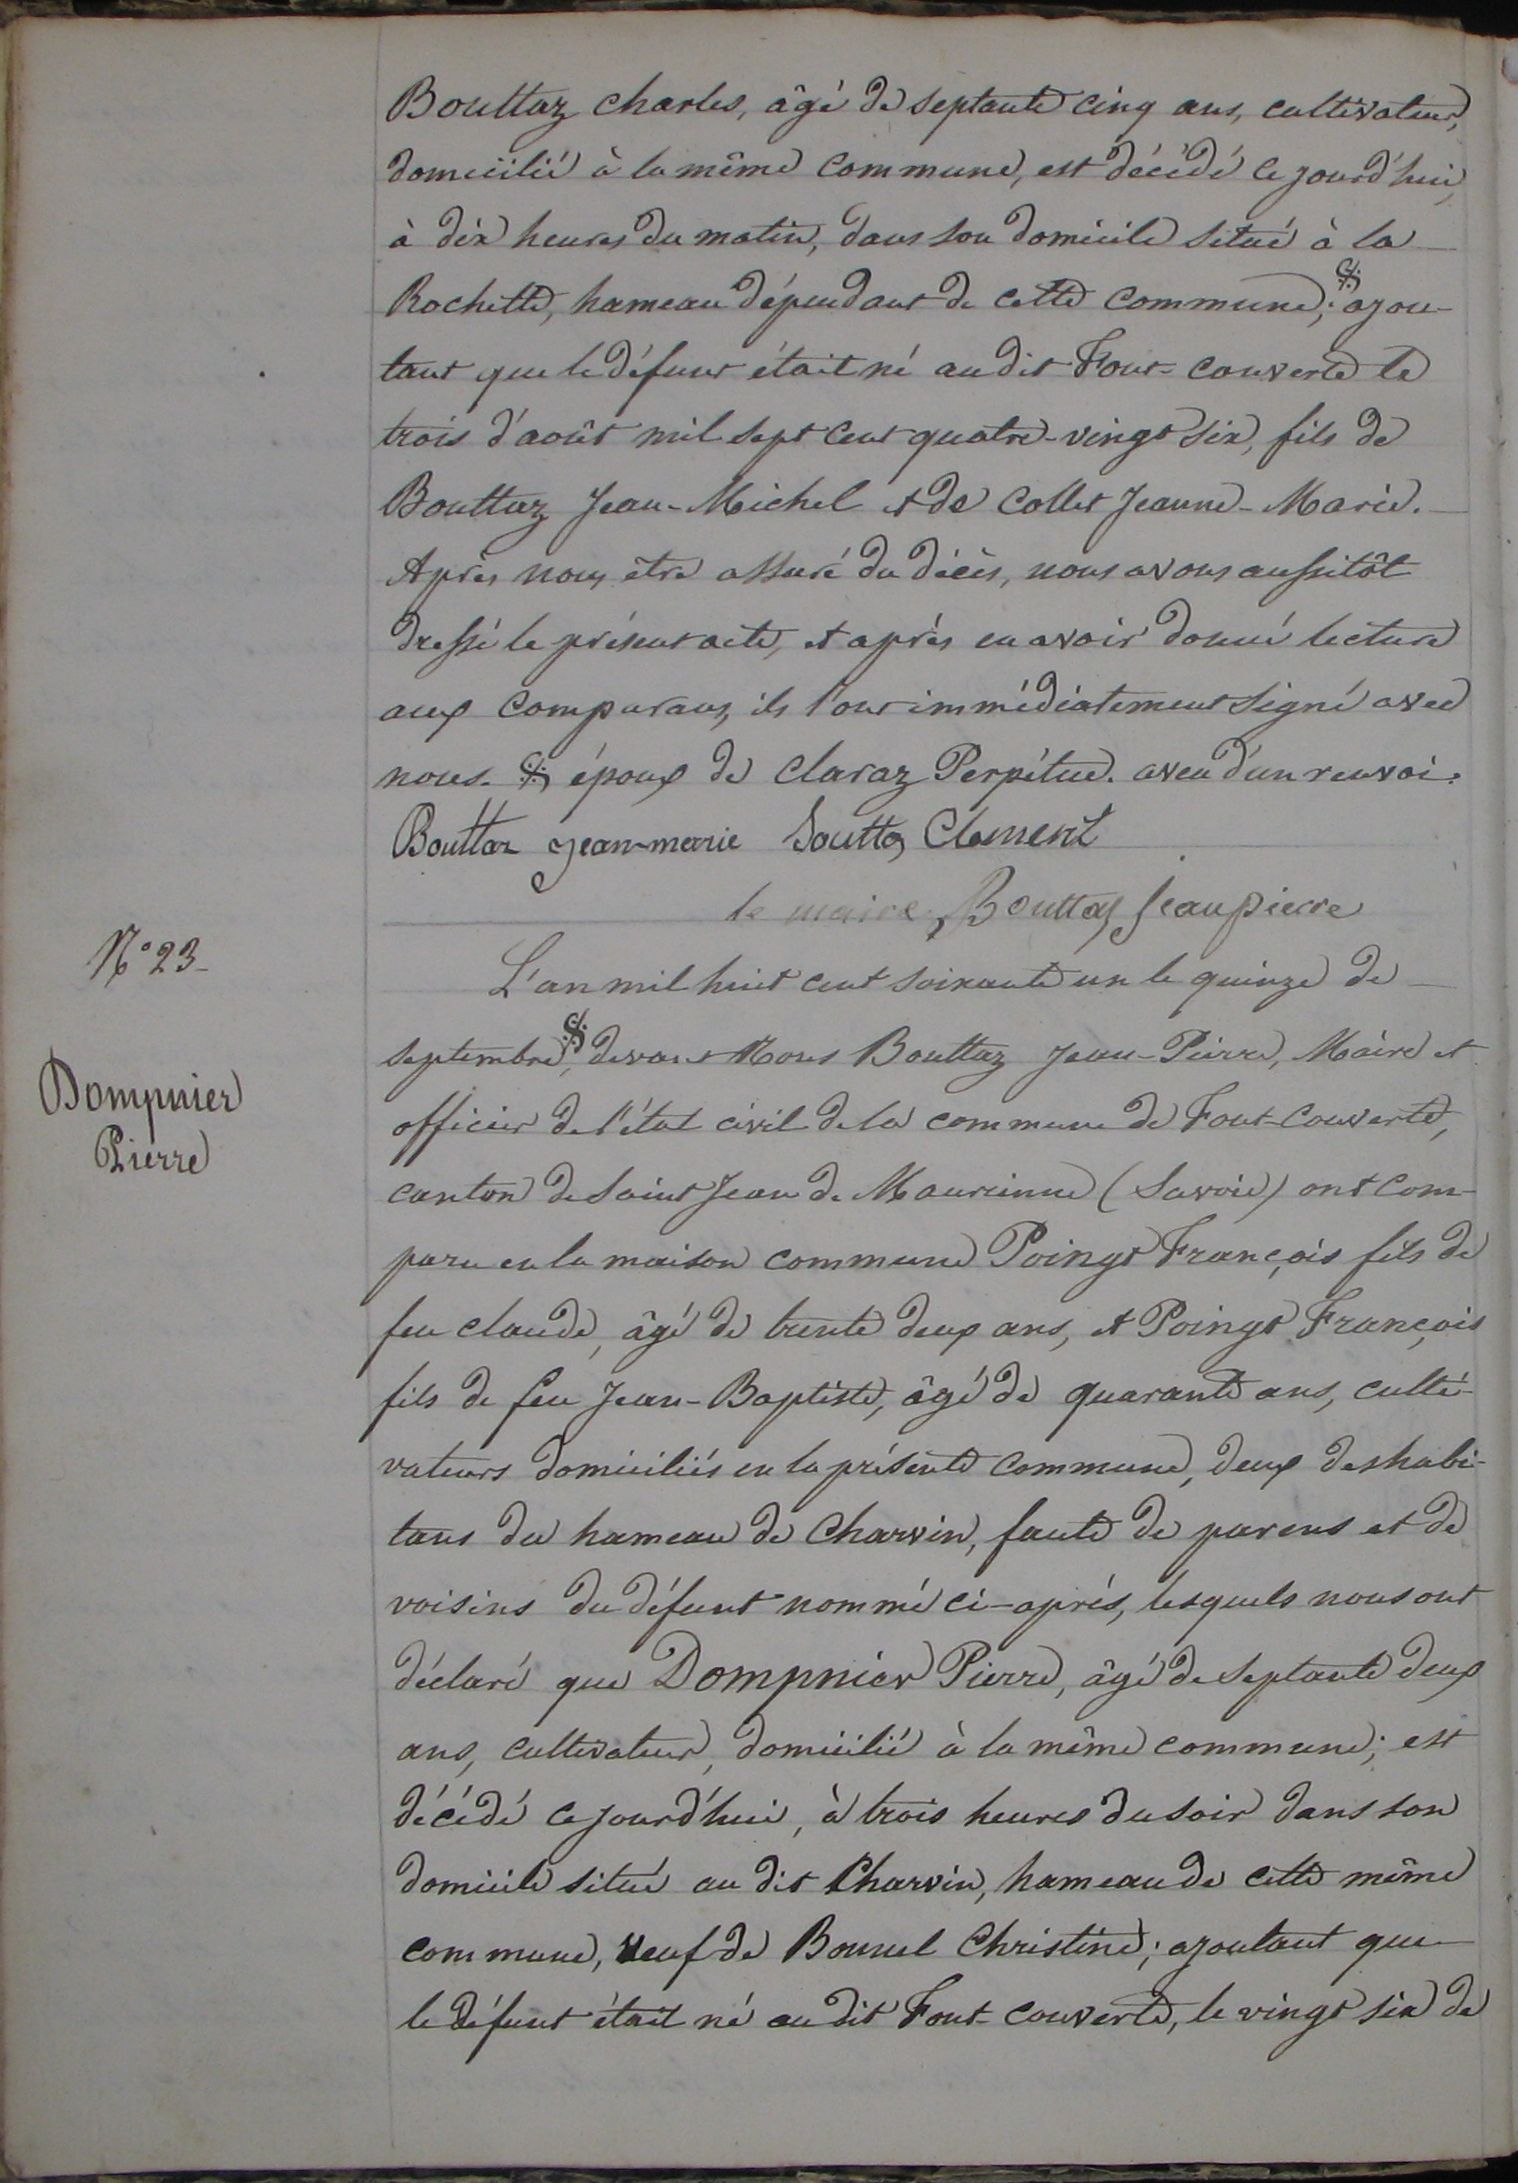 Bouttaz Charles, âgé de septante cinq ans, cultivateur,
domicilié à la même commune, est décédé ce jourd'hui,
à dix heures du matin, dans son domicile situé à la
Rochette, hameau dépendant de cette commune; ajou-
tant que le défunt était né au dit Font-couverte le
trois d'août mil sept cent quatre-vingt six, fils de
Bouttaz Jean-Michel et de Collet Jeanne-Marie.
Après nous être assuré du décès, nous avons aussitôt
dressé le présent acte, et après en avoir donné lecture
aux comparans, ils l'ont immédiatement signé avec
nous. époux de Claraz Perpétue. aveu d'un renvoi.
Bouttaz jean-marie Boutta Clement
le maire, Bouttaz Jean pierre
N° 23
Dompnier
Pierre
L'an mil huit cent soixante un le quinze de
septembre, devant Nous Bouttaz Jean-Pierre, Maire et
officier de l'état civil de la commune de Font-Couverte,
canton de Saint Jean de Maurienne (Savoie) ont com-
paru en la maison commune Poingt François fils de
feu claude, âgé de trente deux ans, et Poingt François
fils de feu Jean-Baptiste, âgé de quarante ans, culti-
vateurs domiciliés en la présente commune, deux des habi-
tans du hameau de Charvin, faute de parens et de
voisins du défunt nommé ci-après, lesquels nous ont
déclaré que Dompnier Pierre, âgé de septante deux
ans, cultivateur, domicilié à la même commune; est
décédé ce jourd'hui, à trois heures du soir dans son
domicile situé au dit Charvin, hameau de cette même
commune, veuf de Bonnel Christine; ajoutant que
le défunt était né au dit Font-couverte, le vingt six de